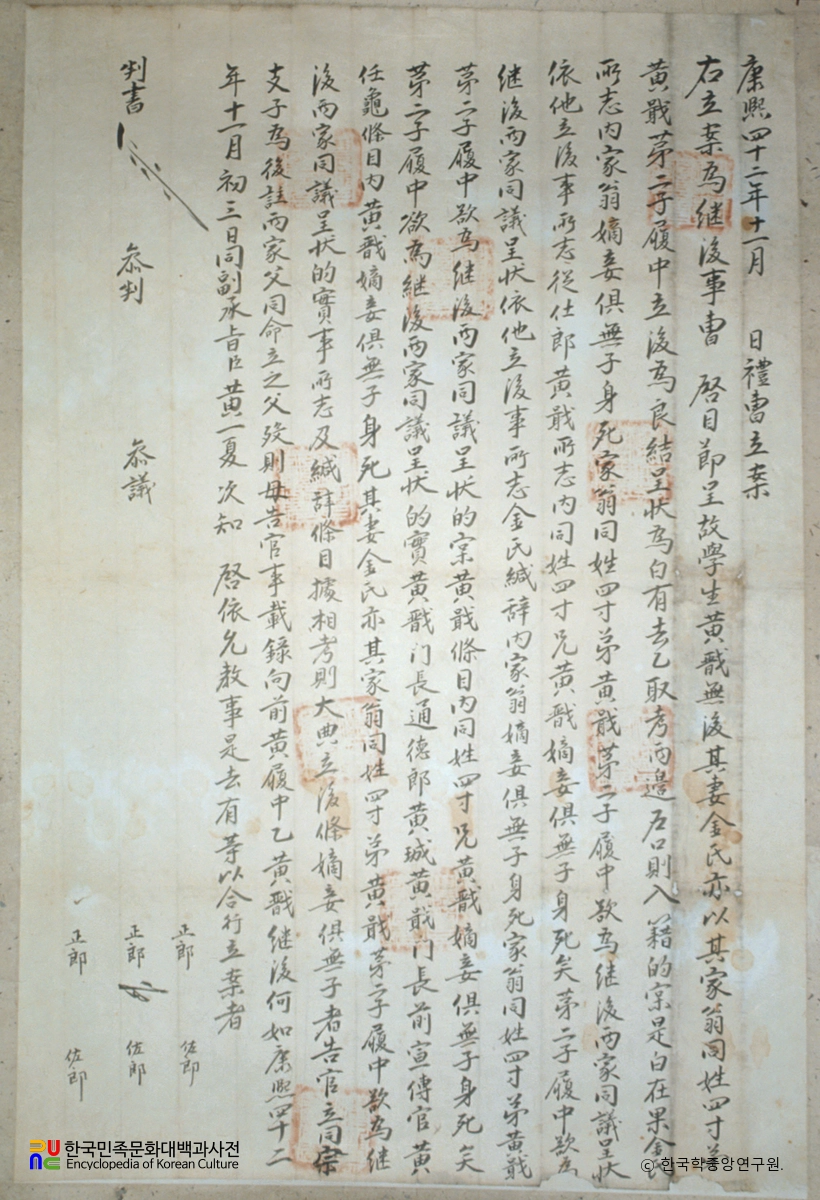 康熙四十二年十一月 日禮曺立案
右立案爲継後事曺 啓目節呈故學生黃戩無後其妻金氏亦以其家翁同姓四寸弟
黃戢第二子履中立後爲良結呈狀爲白有去乙取考兩邊戶口則入籍的實是白在果金氏
所志內家翁嫡妾俱無子身死家翁同姓四寸弟黃戢第二子履中欲爲継後兩家同議呈狀
依他立後事所志從仕郎黃戢所志內同姓四寸兄黃戩嫡妾俱無子身死矣第二子履中欲爲
継後兩家同議呈狀依他立後事所志金氏緘辞內家翁嫡妾俱無子身死家翁同姓四寸弟黃戢
第二子履中欲爲継後兩家同議呈狀的実黃戢條目內同姓四寸兄黃戩嫡妾俱無子身死矣
第二子履中欲爲継後兩家同議呈狀的實黃戩門長通德郎黃珹黃戢門長前宣傳官黃
任龜條目內黃戩嫡妾俱無子身死其妻金氏亦其家翁同姓四寸弟黃戢第二子履中欲爲継
後兩家同議呈狀的實事所志及緘辞條目據相考則大典立後條嫡妾俱無子者告官立同宗
支子爲後註兩家父同命立之父歿則母告官事載錄向前黃履中乙黃戩継後何如康熙四十二
年十一月初三日同副承旨臣黃一夏次知 啓依允敎事是去有等以合行立案者
判書 叅判 叅議
正郎 佐郎
正郎 佐郎
正郎 佐郎
한국민족문화대백과사전
Encyclopedia of Korean Culture
© 한국학중앙연구원.